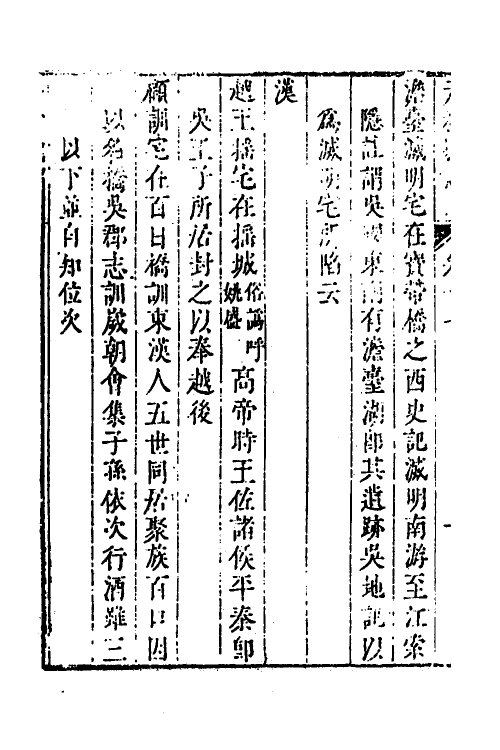 澹臺滅明宅在寶帶橋之西史記滅明南游至江索
隱註謂吳國東南有澹臺湖即其遺跡吳地記以
為滅明宅所陷云
漢
越王搖宅在搖城俗譌呼姚盛高帝時王佐諸侯平秦郎
吳王子所居封之以奉越後
顧訓宅在百口橋訓東漢人五世同居聚族百口因
以名橋吳郡志訓歲朝會集子孫依次行酒雖三
以下並自知位次